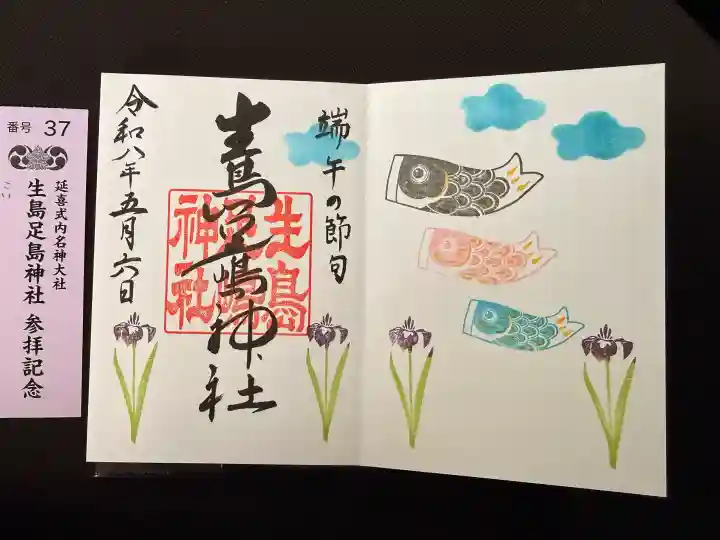 番号 37
延喜式内名神大社
生島足島神社 参拝記念
こい
端午の節句
生島足嶋神社
生島足嶋神社
令和八年五月六日